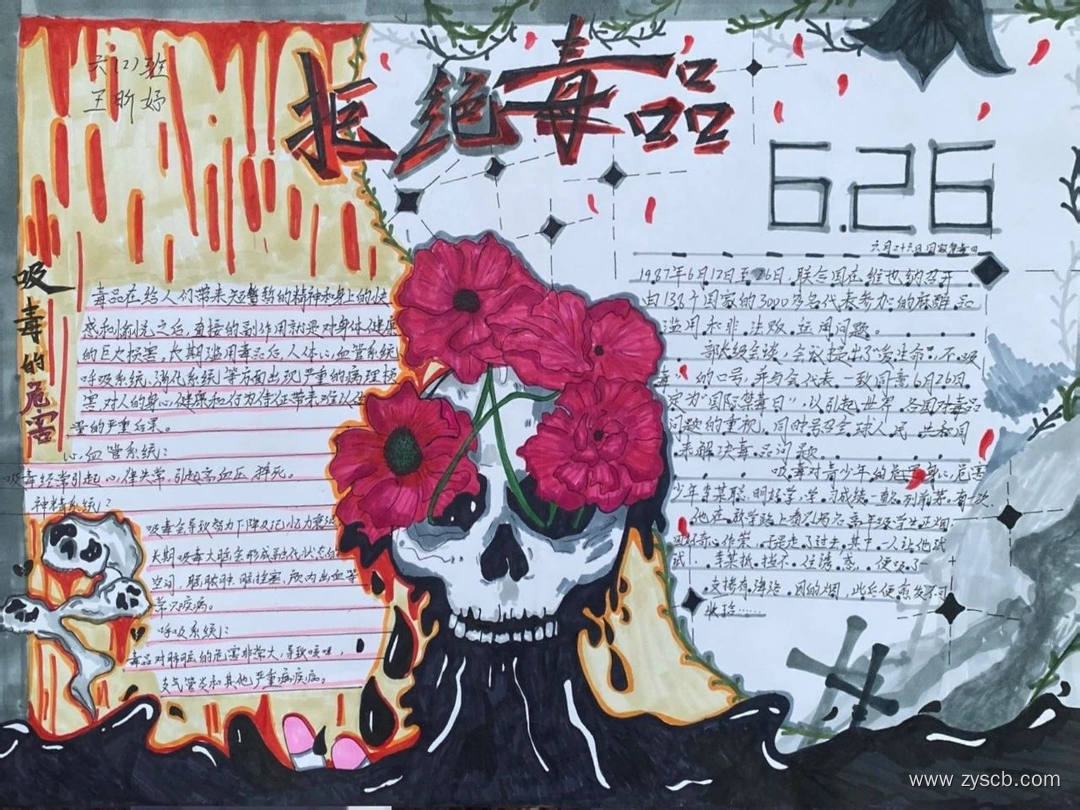 六(2)班
王昕妤
拒绝毒品
6.26
六月二十六日国际禁毒日
吸毒的危害
毒品在给人们带来短暂的精神和身上的快
感和愉悦之后,直接的副作用就是对身体健康
的巨大损害,长期滥用毒品后,人体心血管系统
呼吸系统、消化系统等方面出现严重的病理损
害对人的身心健康和行为
的严重后果。
心血管系统:
吸毒经常引起心律失常,引起高血压猝死。
神精系统:
吸毒会导致努力下降及记忆力衰退
长期吸毒大脑会形成
空洞、脑
等疾病。
呼吸系统:
毒品对肺脏的危害非常大,导致咳嗽,
支气管炎和其他严重病疾病。
1987年6月12日至26日,联合国在维也纳召开
由138个国家的3000多名代表参加的麻醉品
滥用和非法贩运问题。
部长级会谈,会议提出了"爱生命,不吸
毒"的口号,并与会代表一致同意6月26日
定为"国际禁毒日",以引起世界各国对毒品
问题的重视,同时号召全球人民共和同
来解决毒品问题
吸毒对青少年的危害身心危害
少年李某聪明好学,学习成绩一直名列前茅,有一次
他在放学路上看见几名高年级学生正烟
好奇心作祟,于是走了过去,其中一人让他试
试。李某抵挡不住诱惑,便吸了一
支掺有海洛因的烟,此后便愈发不可
收拾……
www.zyscb.com